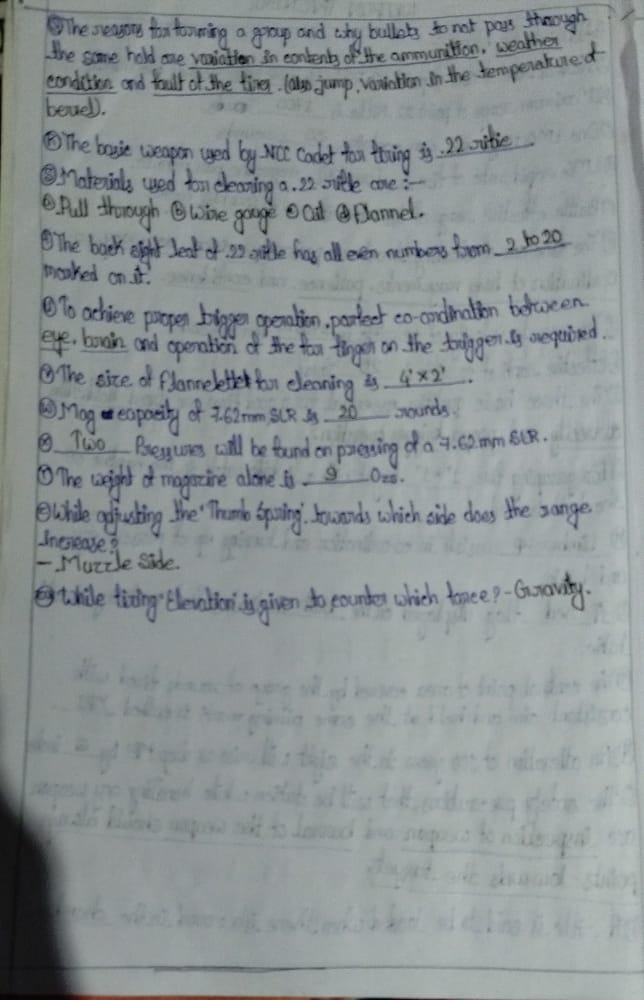 The reasons for forming a group and why bullets to not pass through
the same hold are variation in contents of the ammunition, weather
condition and fault of the firer. (also jump, variation in the temperature of
berrel).
The basic weapon used by NCC Cadet for firing is .22 rifle.
Materials used for cleaning a .22 rifle are :-
Pull through Wire gauge Oil Flannel.
The back sight leaf of .22 rifle has all even numbers from 2 to 20
marked on it.
To achieve proper trigger operation, parfect co-ordination between
eye, brain and operation of the for finger on the trigger is required.
The size of Flannelette for cleaning is 4'x2'.
Mag capacity of 7.62mm SLR is 20 rounds.
Two Pressures will be found on pressing of a 7.62mm SLR.
The weight of magazine alone is 9 Ozs.
While adjusting the 'Thumb Spring'. towards which side does the range
Increase?
- Muzzle Side.
While firing 'Elevation' is given to counter which force? - Gravity.